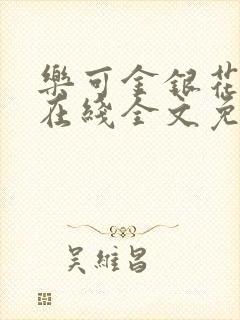 樂可金銀花
在綫全文免
吳維昌